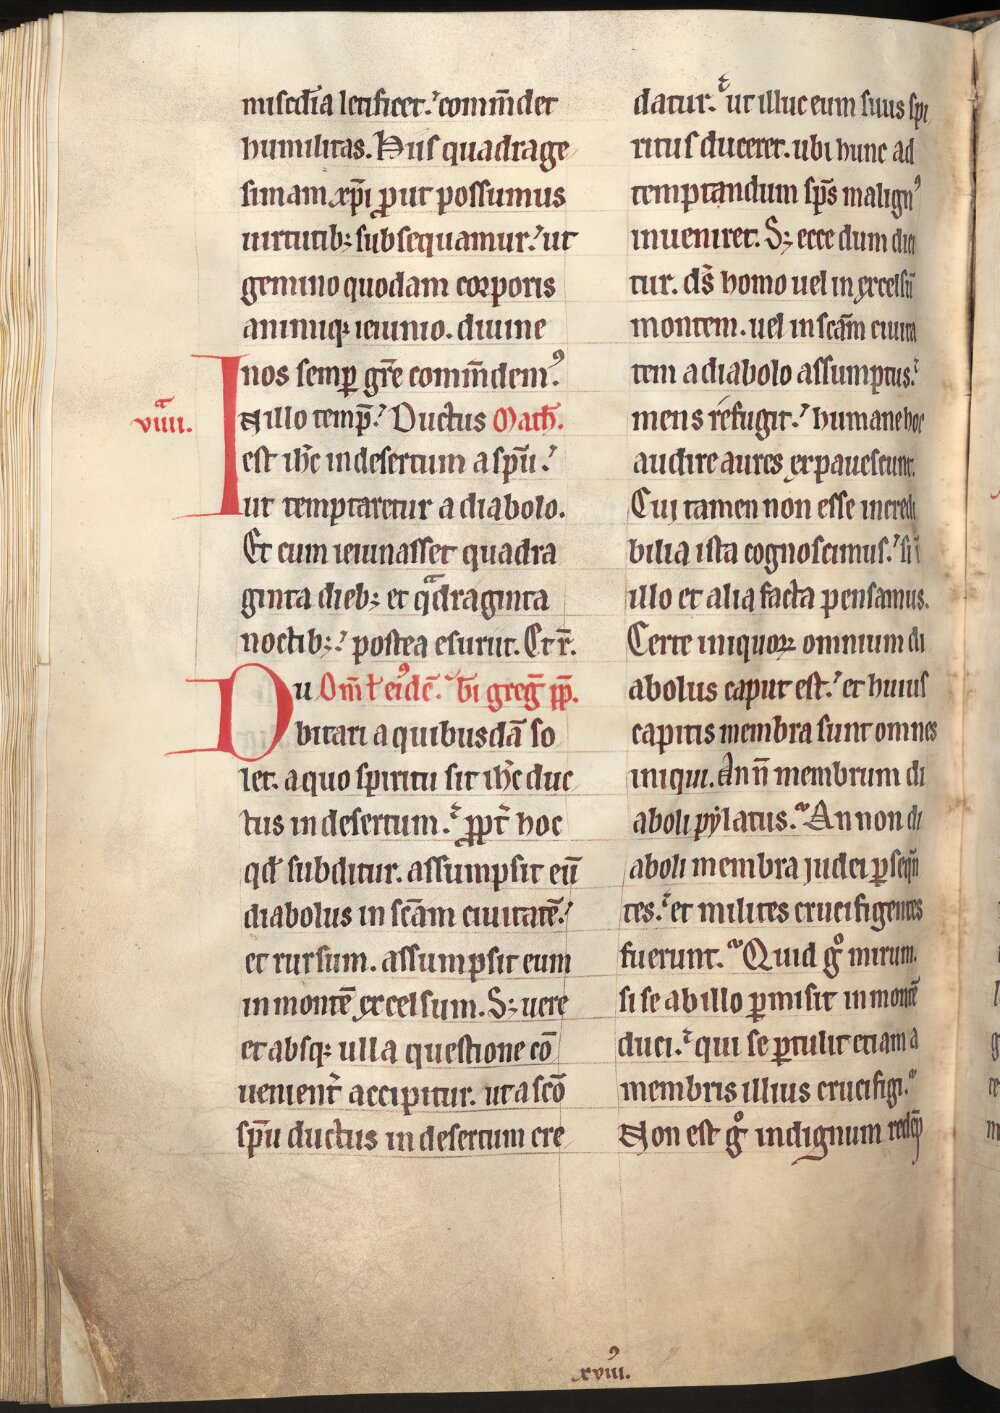 misc̄dia letificet.ʼ com̄ndet
humilitas. Hiis quadrage
simam xp̄i ꝓut possumus
uirtutibꝫ subsequamur.ʼ ut
gemino quodam corporis
animiqꝫ ieiunio. diuine
nos semꝑ gr̄e com̄ndemꝰ.
viiiiᵃ.
In illo temp̄.ʼ Ductus Math̄.
est ih̄c in desertum a sp̄u.ʼ
ut temptaretur a diabolo.
Et cum ieiunasset quadra
ginta diebꝫ et qᵃdraginta
noctibꝫ.ʼ postea esuriit. Et r̄.
Du Om̄l̄ eiꝰdē. bī greg̅ pp̄.
bitari a quibusdā so
let. a quo spiritu sit ih̄c duc
tus in desertum. ꝓpt̄ hoc
qđ subditur. assumpsit eū
diabolus in sc̄am ciuitatē.ʼ
et rursum. assumpsit eum
in montē excelsum. Sꝫ uere
et absqꝫ ulla questione cō
uenient̄ accipitur. ut a sc̄o
sp̄u ductus in desertum cre
datur. ut illuc eum suus spi
ritus duceret. ubi hunc ad
temptandum sp̄s malignꝰ
inueniret. Sꝫ ecce dum dici
tur. ds̄ homo uel in excelsū
montem. uel in sc̄am ciuita
tem a diabolo assumptus.
mens refugit.ʼ humane hoc
audire aures expauescunt.
Cui tamen non esse incredi
bilia ista cognoscimus.ʼ si ī
illo et alia facta pensamus.
Certe iniquoꝝ omnium di
abolus caput est.ʼ et huius
capitis membra sunt omnes
iniqui. An n̄ membrum di
aboli pylatus. An non di
aboli membra judei ꝑseqn̄
tes. et milites crucifigentes
fuerunt. Quid gͦ mirum.
si se ab illo ꝑmisit in montē
duci. qui se ꝑtulit etiam a
membris illius crucifigi.
Non est gͦ indignum redēp
xviiiꝰ.